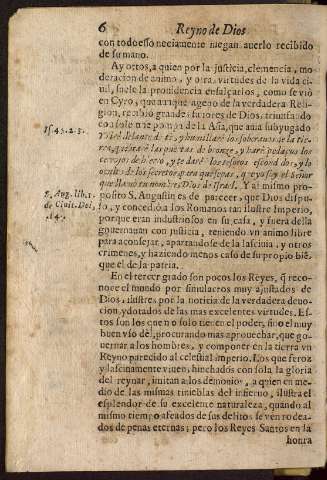 6 Reyno de Dios
con todo esso neciamente niegan auerlo recibido
de su mano.
Ay otros, a quien por la justicia, clemencia, mo
deracion de animo, y otras virtudes de la vida ci-
uil, suele la prouidencia ensalçarlos, como se viò
en Cyro, que aunque ageno de la verdadera Reli-
gion, recibiò grandes fauores de Dios, triunfando
con solo
de la Asia, que auia subyugado
Isi.45.2.3.
delante de ti, y humillarè los soberuios de la tie-
rra,
las puertas de bronze, y harè pedaços los
cerrojos de hierro, y te darè los tesoros escondidos, y lo
de los secretos, para que sepas, que yo soy el Señor
que llamò tu nombre, Dios de Israel. Y al mismo pro-
S. Aug. lib.5.
posito S. Augustin es de parecer, que Dios dispu-
de Ciuit. Dei,
so, y concediò a los Romanos tan ilustre Imperio,
porque eran industriosos en su casa, y fuera della
gouernauan con justicia, teniendo vn animo libre
para aconsejar, apartandose de la lasciuia, y otros
crimenes, y haziendo menos caso de su propio biē,
que el de la patria.
En el tercer grado son pocos los Reyes, q̃ reco-
noce el mundo por simulacros muy ajustados de
Dios, ilustres por la noticia de la verdadera deuo-
cion, y dotados de las mas excelentes virtudes. Es-
tos son los que no solo tienen el poder, sino el muy
buen vso dèl, procurando mas aprouechar, que go
uernar a los hombres, y componer en la tierra vn
Reyno parecido al celestial imperio. Los que feroz
y lasciuamente viuen, hinchados con sola la gloria
del reynar, imitan a los demonios, a quien en me-
dio de las mismas tinieblas del infierno, ilustra el
esplendor de su excelente naturaleza, quando al
mismo tiempo afeados de sus delitos se ven rodea-
dos de penas eternas; pero los Reyes Santos en la
honra